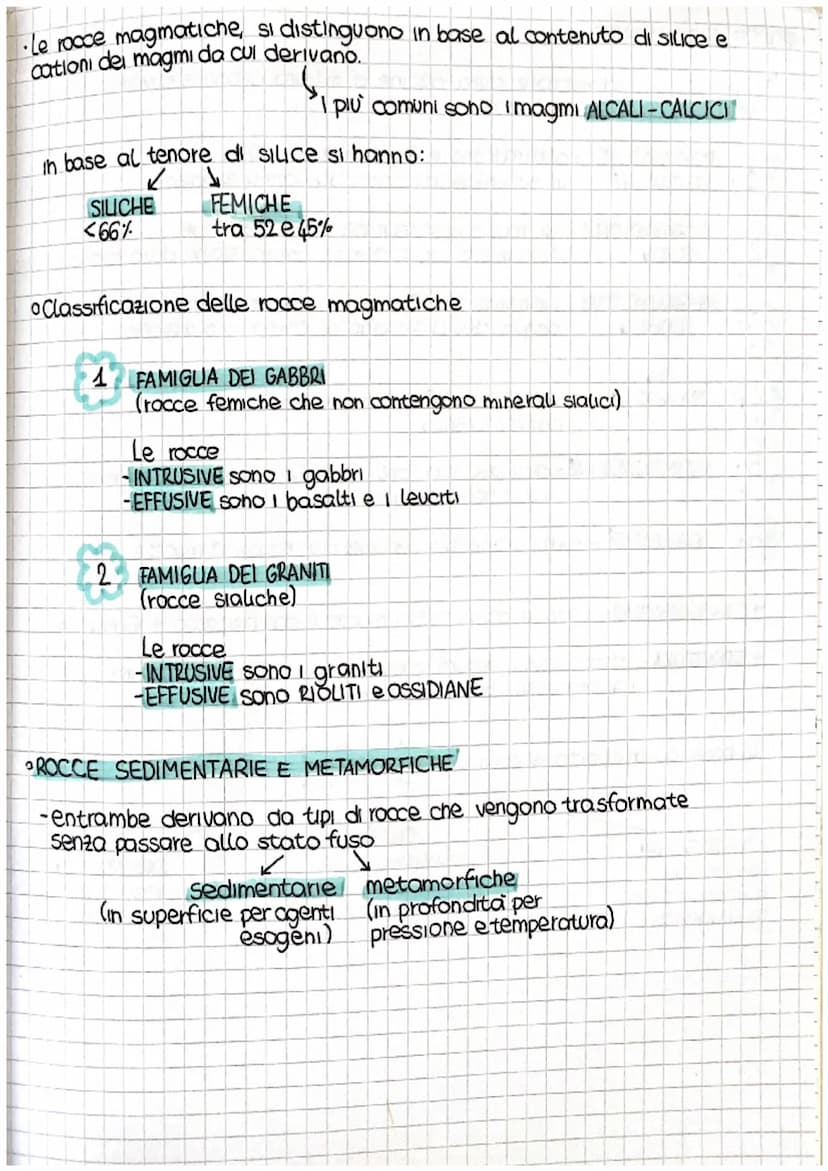 ·Le rocce magmatiche, si distinguono in base al contenuto di silice e
cationi dei magmi da cui derivano.
I più comuni sono i magmi ALCALI-CALCICI
in base al tenore di silice si hanno:
SILICHE FEMICHE
<66% tra 52 e 45%
Classificazione delle rocce magmatiche
1 FAMIGLIA DEI GABBRI
(rocce femiche che non contengono minerali sialici)
Le rocce
-INTRUSIVE sono i gabbri
-EFFUSIVE sono i basalti e i leuciti
2 FAMIGLIA DEI GRANITI
(rocce sialiche)
Le rocce
-INTRUSIVE sono i graniti
-EFFUSIVE sono RIOLITI e OSSIDIANE
ROCCE SEDIMENTARIE E METAMORFICHE
-entrambe derivano da tipi di rocce che vengono trasformate
senza passare allo stato fuso
sedimentarie metamorfiche
(in superficie per agenti (in profondità per
esogeni) pressione e temperatura)